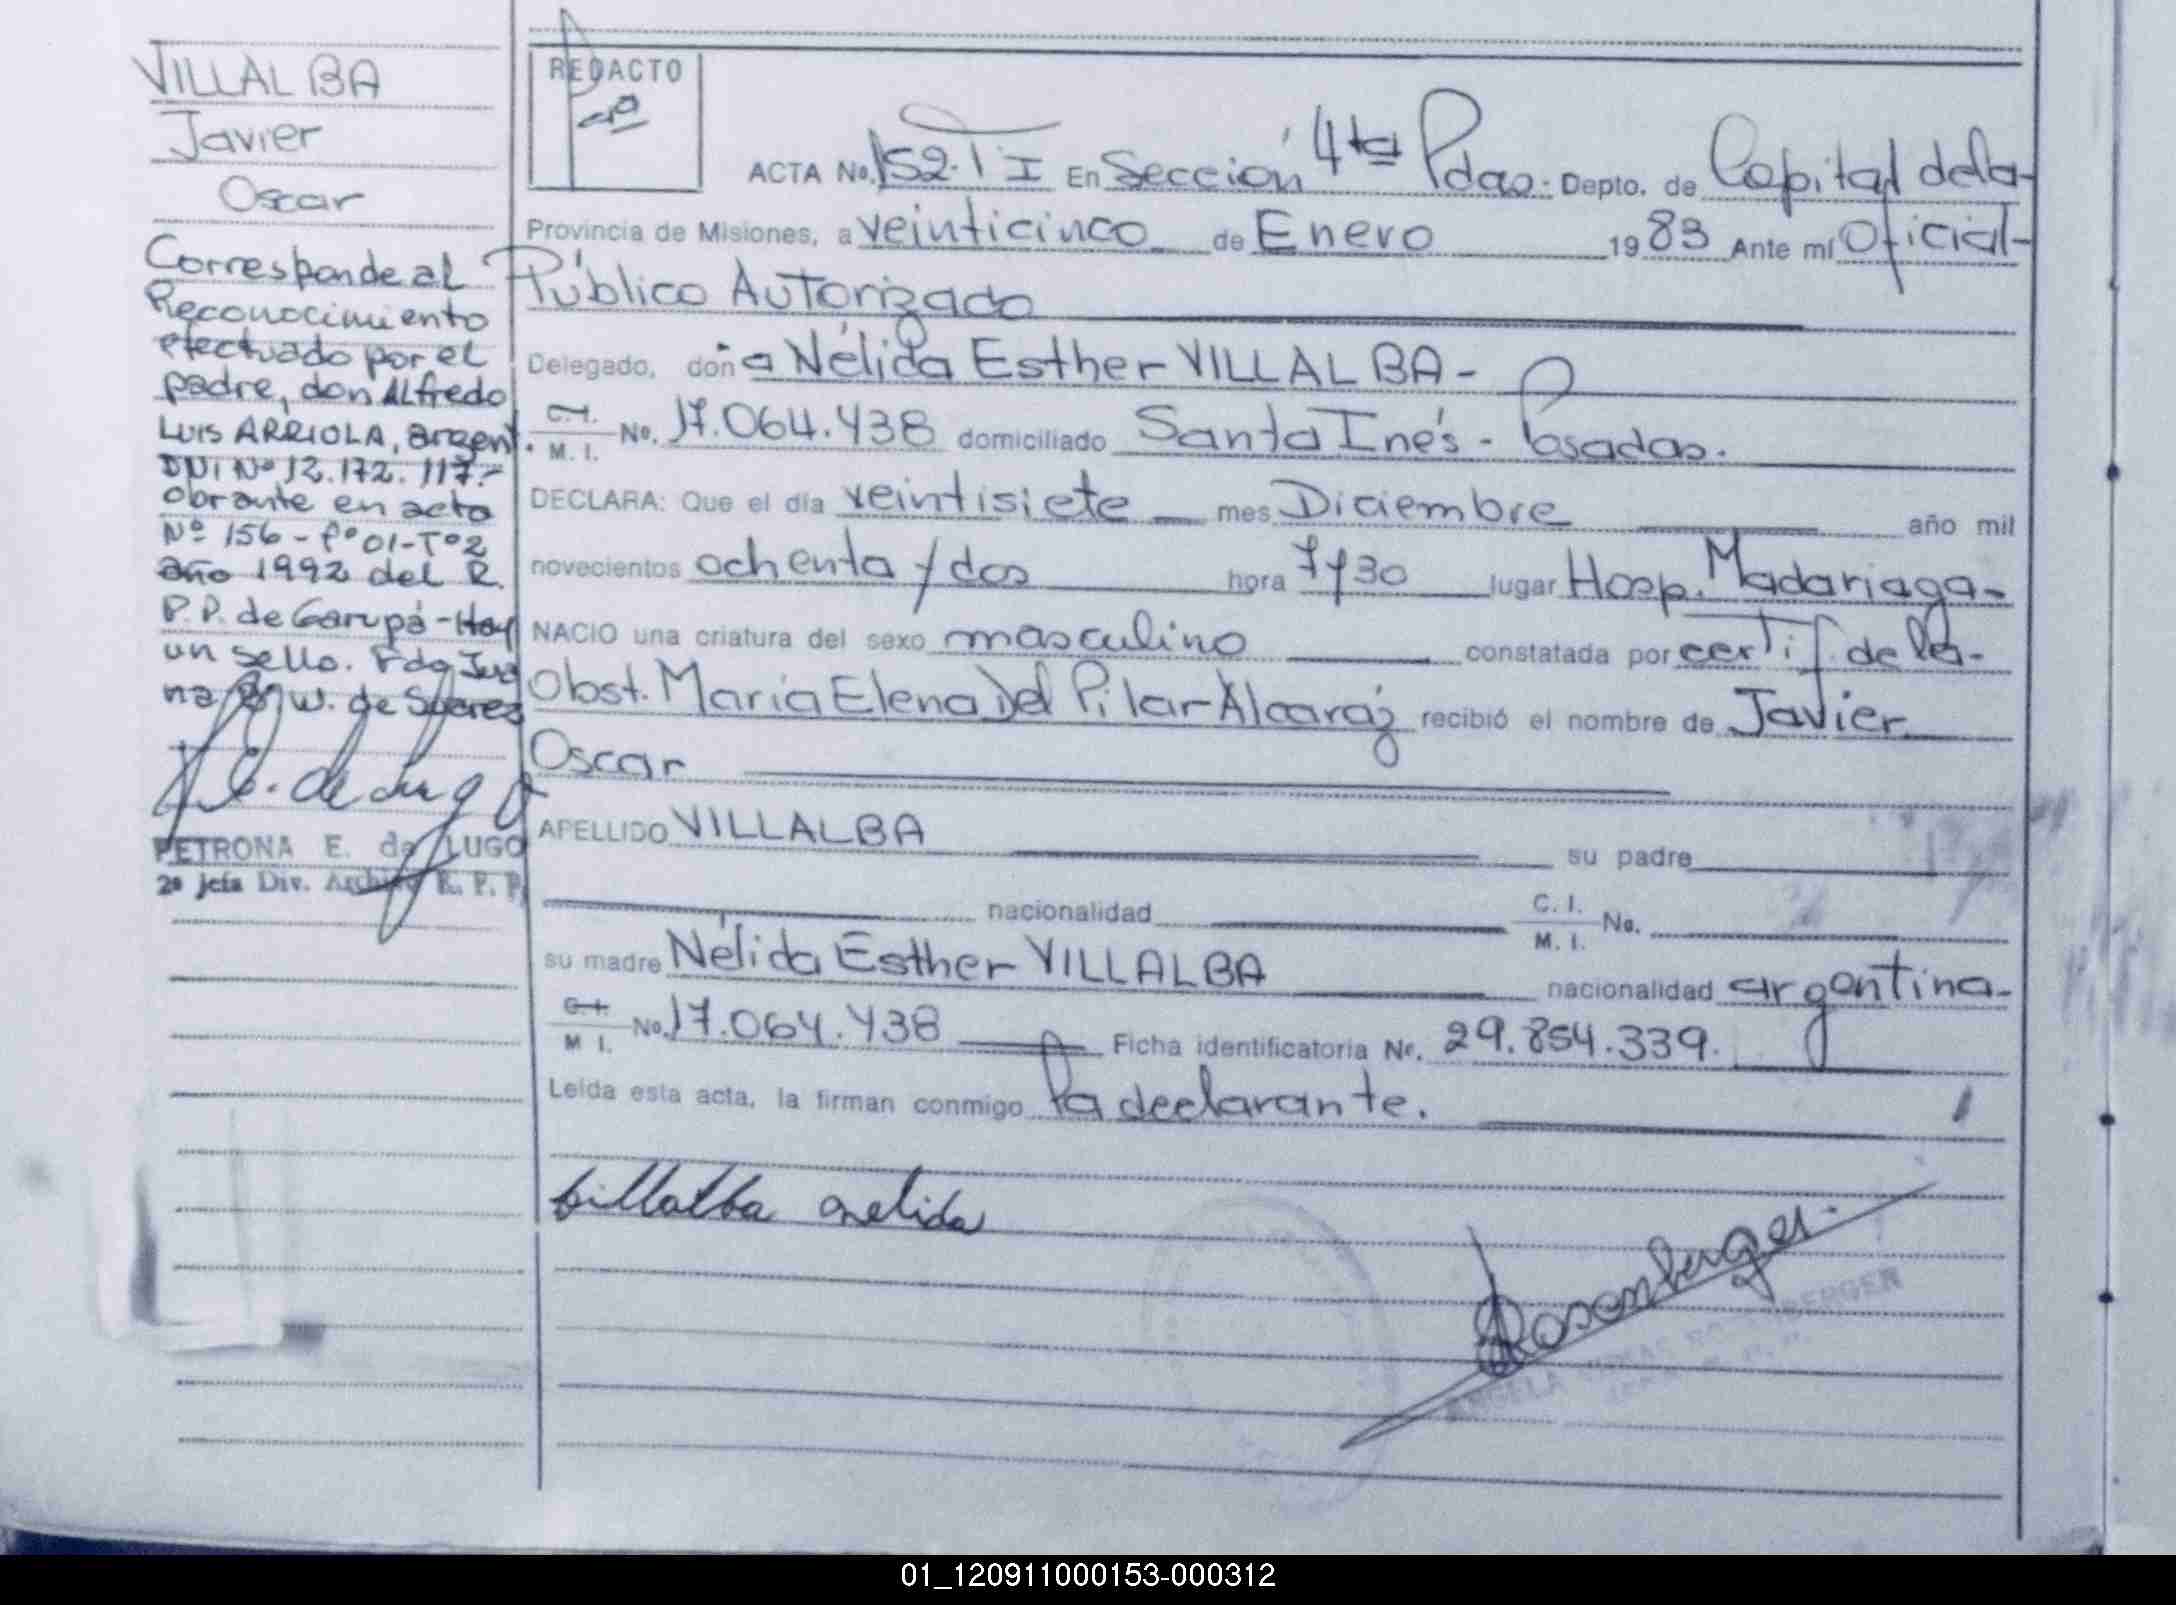 VILLALBA
Javier
Oscar
Corresponde al
Reconocimiento
efectuado por el
padre, don ALfredo
LUIS ARRIOLA, argent.
DNI Nº 12.172.117.-
obrante en acta
Nº 156 - Fº 01 - Tº 2
año 1992 del R.
P.P. de Garupá - Hay
un sello. Fdo Jua
na W. de Suarez
PETRONA E. de LUGO
2º Jefa Div. Archivo R. P. P.
REDACTO
ACTA No. 152. T I En Sección 4ta Pdas. Depto. de Capital de la
Provincia de Misiones, a veinticinco de Enero 1983 Ante mí Oficial-
Público Autorizado
Delegado, doña Nélida Esther VILLALBA -
C.I. / M. I. No. 17.064.438 domiciliado Santa Inés - Posadas.
DECLARA: Que el día veintisiete mes Diciembre año mil
novecientos ochenta y dos hora 7y30 lugar Hosp. Madariaga-
NACIO una criatura del sexo masculino constatada por certif. de la-
Obst. María Elena Del Pilar Alcaraz recibió el nombre de Javier
Oscar
APELLIDO VILLALBA su padre
nacionalidad C. I. / M. I. No.
su madre Nélida Esther VILLALBA nacionalidad argentina-
C.I. / M I. No. 17.064.438 Ficha identificatoria Nr. 29.854.339.
Leída esta acta, la firman conmigo la declarante.
billalba nelida
Rosenberger
01_120911000153-000312